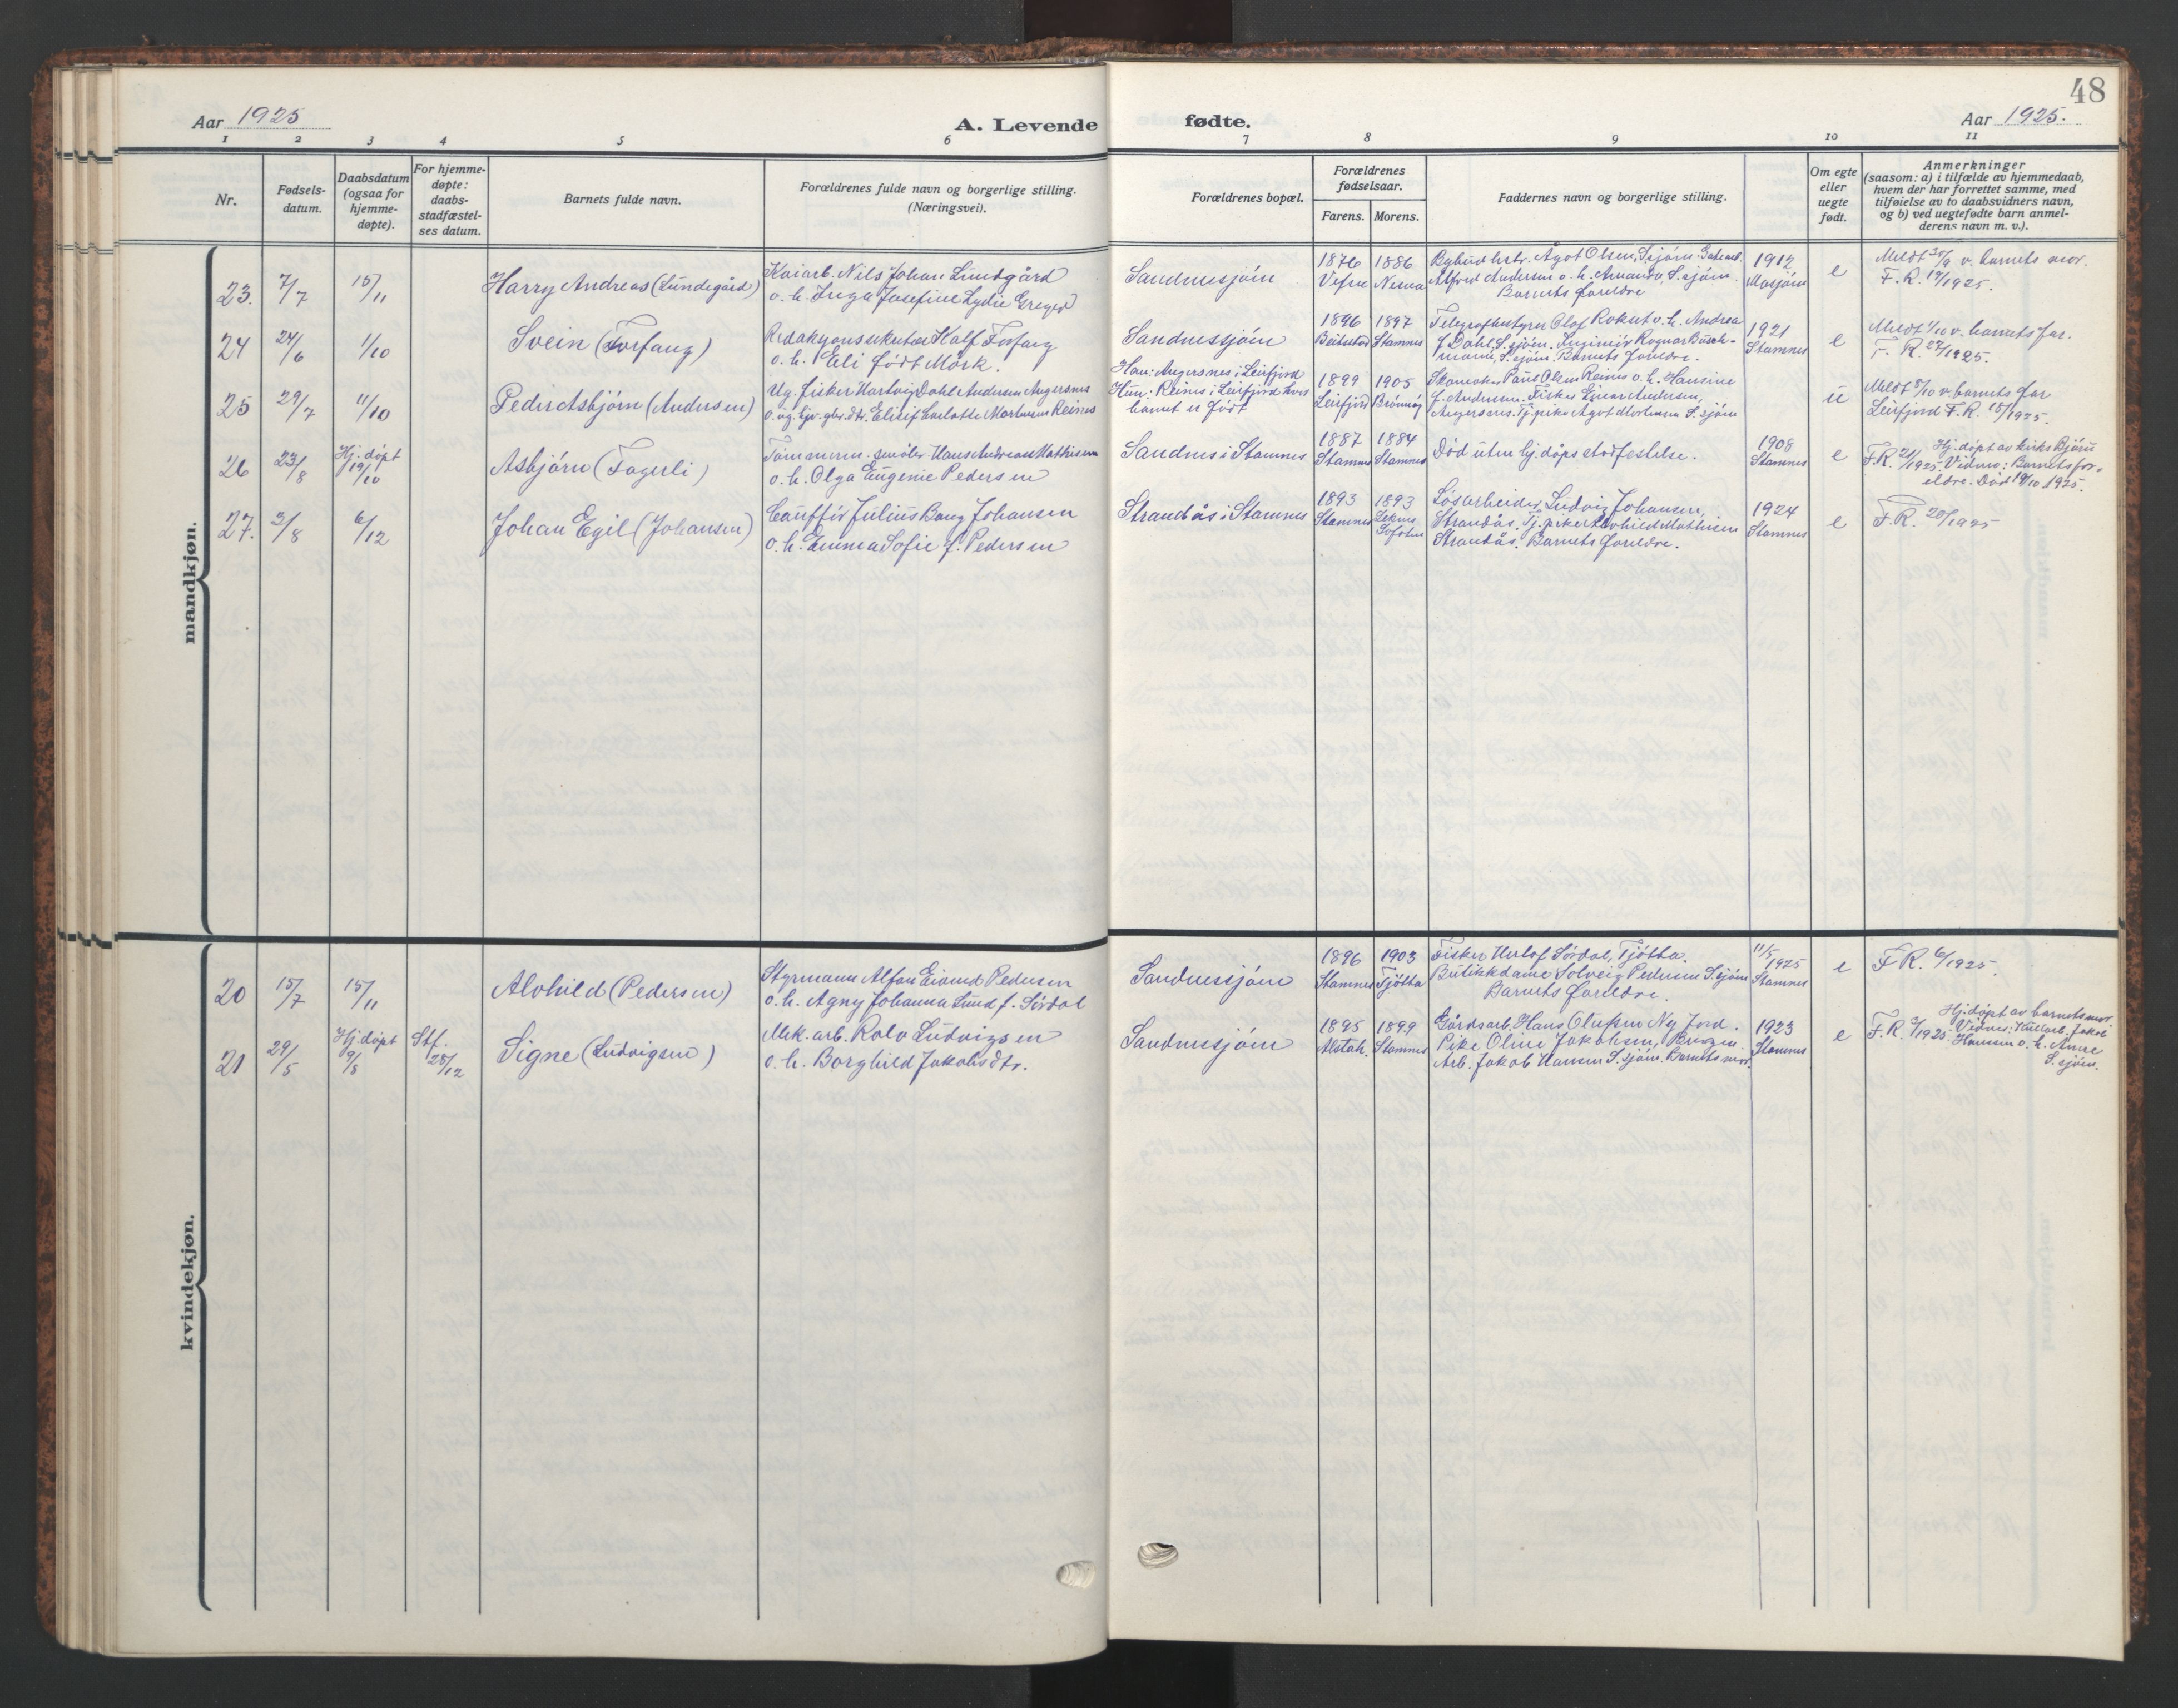 48
Aar 1925
A. Levende
fødte.
Aar 1925.
1 2 3 4 5 6 7 8 9 10 11
Nr.
Fødsels-
datum.
Daabsdatum
(ogsaa for
hjemme-
døpte).
For hjemme-
døpte:
daabs-
stadfæstel-
ses datum.
Barnets fulde navn.
Forældrenes fulde navn og borgerlige stilling.
(Næringsvei).
Forældrenes bopæl.
Forældrenes
fødselsaar.
Farens. Morens.
Faddernes navn og borgerlige stilling.
Om egte
eller
uegte
født.
Anmerkninger
(saasom: a) i tilfælde av hjemmedaab,
hvem der har forrettet samme, med
tilføielse av to daabsvidners navn,
og b) ved uegtefødte barn anmel-
derens navn m. v.).
mandkjøn.
23. 7/7 15/11
Harry Andreas (Lundegård)
Kaiarb. Nils Johan Lundgård
o. h. Inga Josefine Lydie
Sandnessjøen
1876 1886
Vefsn Nesna
Agot Olsen, S.sjøen.
Alfred Andersen o. h. Amanda, S.sjøen.
Barnets foreldre
1912
Mosjøen
e
Meldt 30/9 v. barnets mor.
F. R. 1925.
24 24/6 1/10
Svein (Forfang)
Half Forfang
o. h. Eli født Mörk.
Sandnessjøen
1896 1897
Beitstad Stamnes
Telegrafbestyrer Olof Rokut o. h. Andrea
f. Dahl, S.sjøen. Ingeniør Ragnar Busch-
mann, S.sjøen. Barnets foreldre.
1921
Stamnes
e
Meldt 1/10 v. barnets far.
F. R. 27/1925.
25 29/7 11/10
Peder Asbjørn (Andersen)
Ug. fisker Hartvig Dahl Andersen Angersnes
o. ug. tjv. gbr.dtr. Elisif Charlotte Mortensen Reines
Han: Angersnes i Leirfjord
Hun: Reines i Leirfjord hvor
barnet er født
1899 1905
Leirfjord Brønnøy
Skomaker Paul Olsen Reines o. h. Hansine
f. Andersen. Fisker Einar Andersen,
Angersnes. Tj.pike Agot Mortensen S.sjøen
u
Meldt 8/10 v. barnets far
Leirfjord F. R. 18/1925.
26 23/8 Hj. døpt
19/10
Asbjørn (Fagerli)
Tømmerm. Hans Andreas Mathisen
o. h. Olga Eugenie Pedersen
Sandnes i Stamnes
1887 1884
Stamnes Stamnes
Død uten hj. dåps stadfestelse.
1908
Stamnes
e
Hj. døpt av kirks. Bjørn
F.R. 21/1925. Vidner: Barnets for-
eldre. Død 19/10 1925.
27. 3/8 6/12
Johan Egil (Johansen)
Chauffør Julius Bang Johansen
o. h. Emma Sofie f. Pedersen
Strandås i Stamnes
1893 1893
Stamnes
Lofoten
Løsarbeider Ludvig Johansen,
Strandås. Tj.pike Alvhild Mathisen
Strandås. Barnets foreldre.
1924
Stamnes
e
F.R. 20/1925
kvindekjøn.
20 15/7 15/11
Alvhild (Pedersen)
Styrmann Alfon Eivind Pedersen
o. h. Agny Johanna Lund f. Sördal
Sandnessjøen
1896 1903
Stamnes Tjøtta
Fisker Herlof Sördal, Tjøtta.
Butikkdame Solveig Pedersen S.sjøen
Barnets foreldre.
11/5
1925
Stamnes
e
F R. 6/1925.
21 29/5 Hj. døpt
9/8
Stf.
28/12
Signe (Ludvigsen)
Mek. arb. Rolv Ludvigsen
o. h. Borghild Jakobsdtr.
Sandnessjøen
1895 1899
Alstah. Stamnes
Gårdsarb. Hans Olufsen Ny Jord.
Pike Oline Jakobsen,
Arb. Jakob Hansen S.sjøen. Barnets mor.
1923
Stamnes
e
Hj. døpt av barnets mor.
F. R. 3/1925. Vidner: Kullarb. Jakob
Hansen o. h. Anne
S.sjøen.